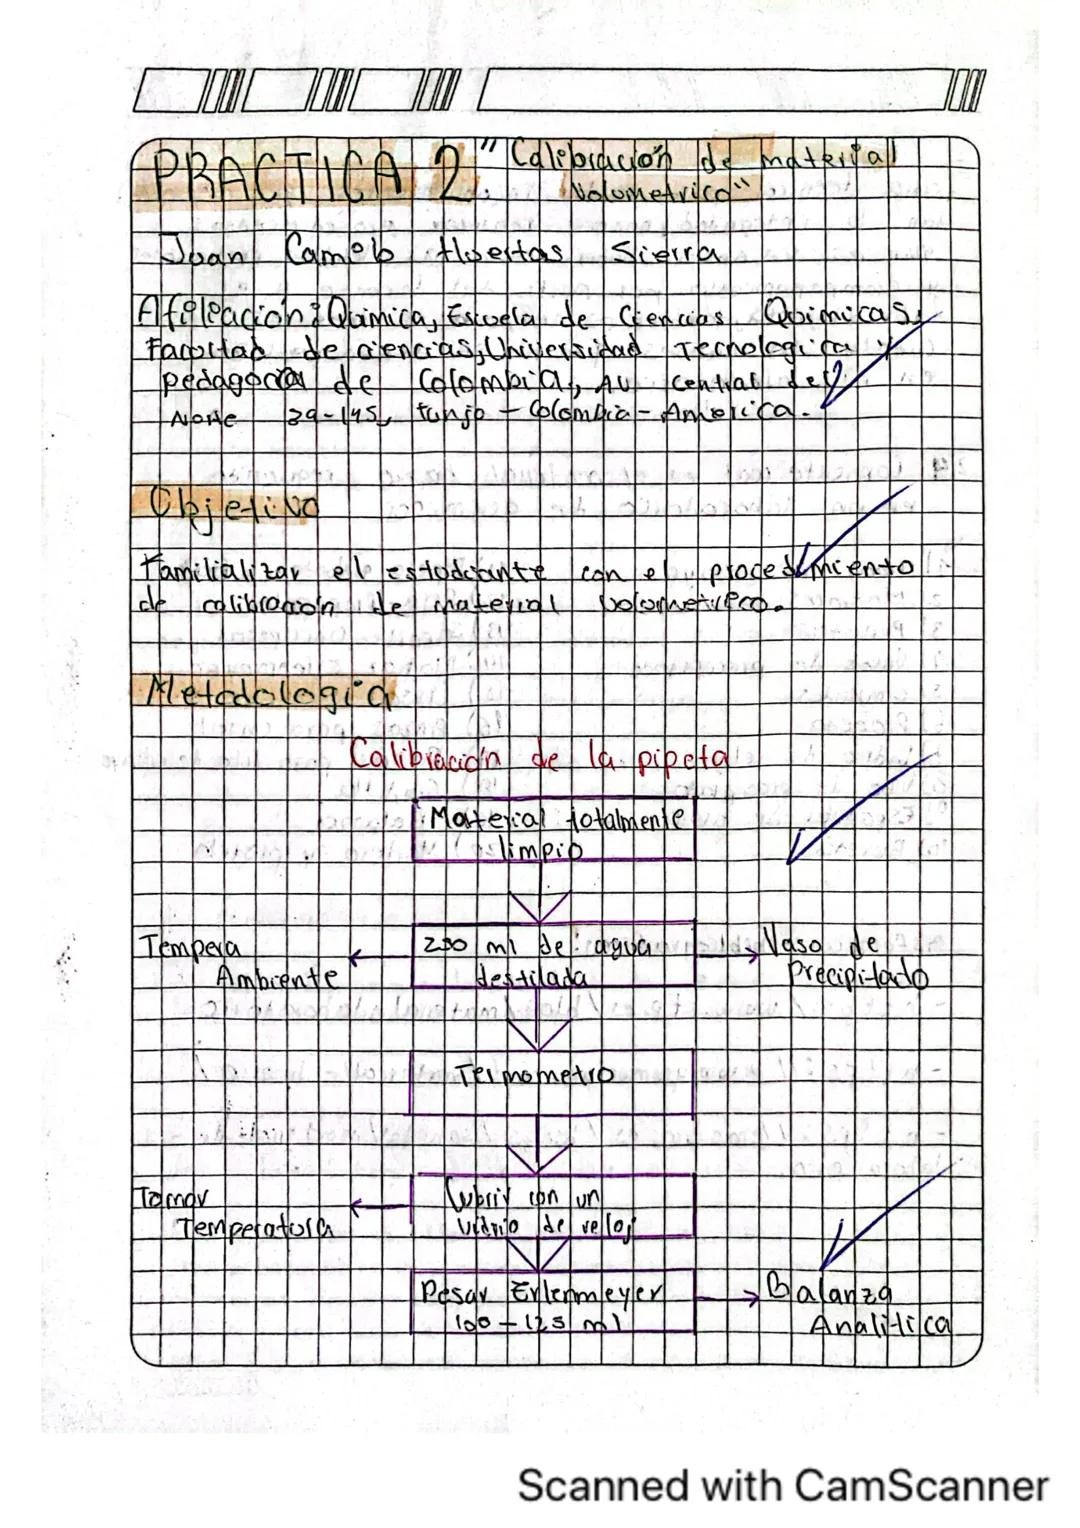 PRACTICA 2 "Calibración de material
Volumetrico"
Juan Camilo Huertas Sierra
Afiliación: Química, Escuela de Ciencias Químicas,
Facultad de ciencias, Universidad Tecnologica y
pedagogica de Colombia, AV Central del
Norte 39-145, tunja - Colombia - America.
Objetivo
Familializar el estudiante con el procedimiento
de calibración de material volumetrico.
Metodologia
Calibración de la pipeta
Material totalmente
limpio
Tempera
Ambiente
200 ml de agua
destilada
Vaso de
Precipitado
Termometro
Tomar
Temperatura
Cubrir con un
vidrio de reloj
Pesar Erlenmeyer
100 - 125 ml
Balanza
Analitica
Scanned with CamScanner